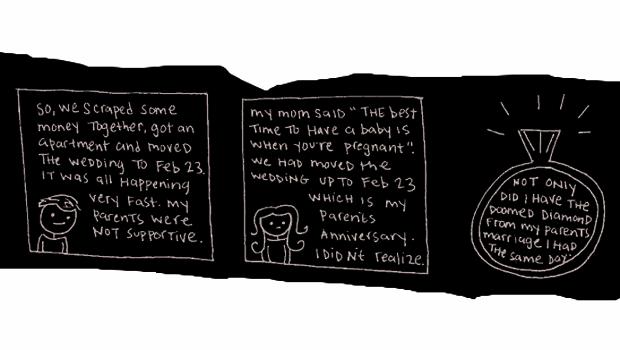 So, we scraped some
money together, got an
apartment and moved
The wedding to Feb 23.
It was all happening
very fast. My
parents were
NOT supportive.
my mom said "THE best
Time To Have a baby is
when you're pregnant".
we Had moved the
wedding up to Feb 23
which is my
Parents
Anniversary.
I DIDNt realize.
NOT ONLY
DID I Have THE
Doomed Diamond
From my parents
marriage I HAD
THE same Day.